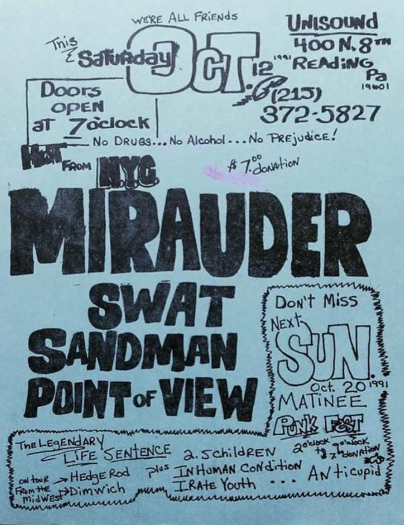 WE'RE ALL FRIENDS
This
Saturday
OCT 12 1991
UNISOUND
400 N. 8TH
READING
Pa
19601
(215)
372-5827
DOORS
OPEN
at 7o'clock
No DRUGS... No Alcohol... No PREJUDICE!
HOT FROM NYC
$7.00 DONATION
MIRAUDER
SWAT
SANDMAN
POINT OF VIEW
DON'T MISS
NEXT
SUN.
Oct. 20 1991
MATINEE
PUNK FEST
2 o'clock
$7 DONATION
The LEGENDARY
LIFE SENTENCE
ON TOUR
FROM the
MIDWEST
→ Hedge Rod
→ Dimwich
plus
2.5 children
INHUMAN CONDITION
IRATE YOUTH ... ANTICUPID